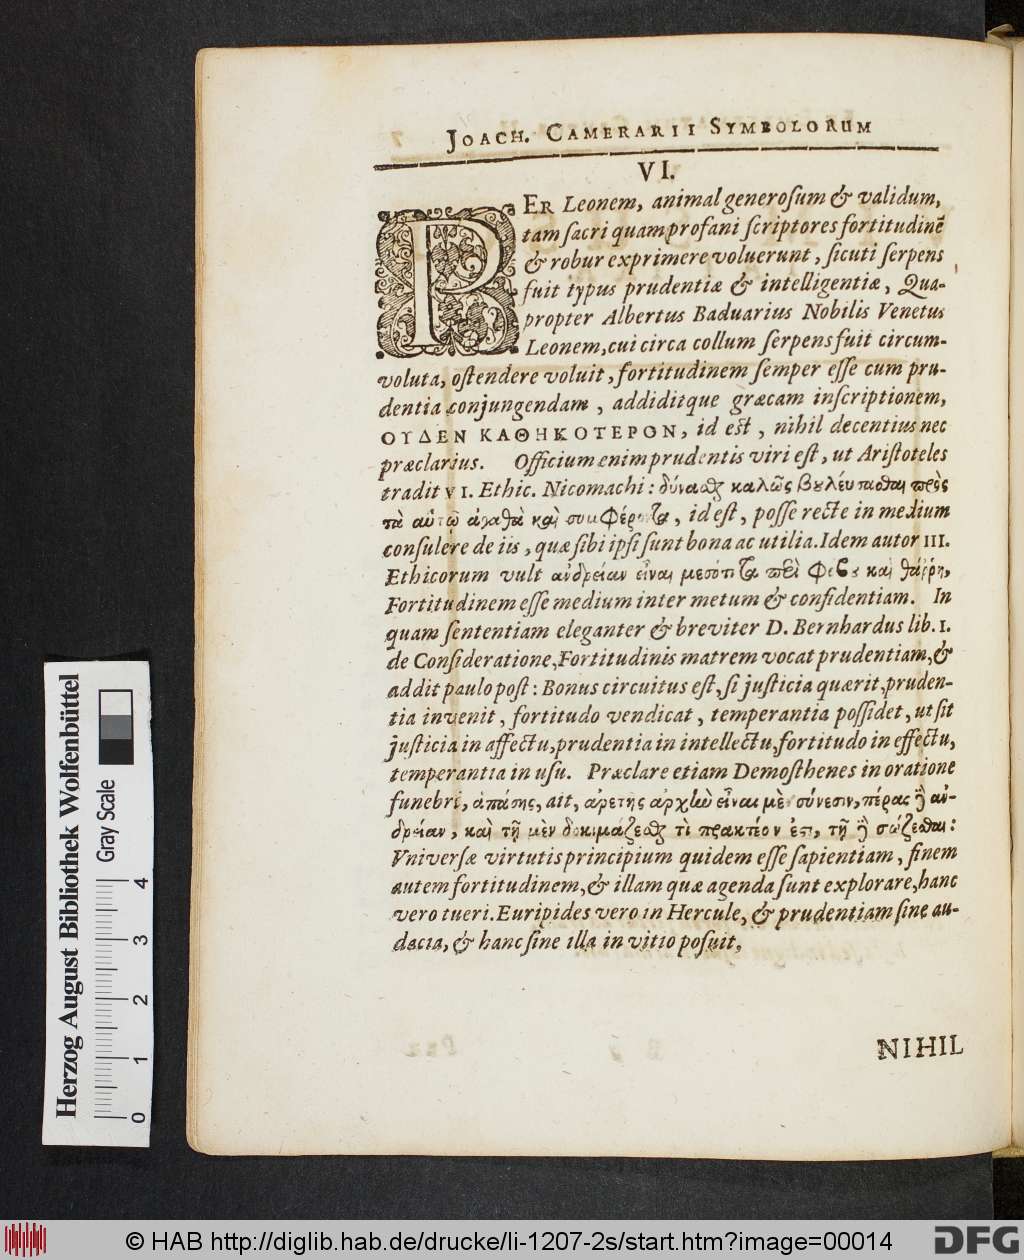 JOACH. CAMERARII SYMBOLORUM
VI.
PER Leonem, animal generosum & validum,
tam sacri quam profani scriptores fortitudinē
& robur exprimere voluerunt, sicuti serpens
fuit typus prudentiæ & intelligentiæ, Qua-
propter Albertus Baduarius Nobilis Venetus
Leonem, cui circa collum serpens fuit circum-
voluta, ostendere voluit, fortitudinem semper esse cum pru-
dentia conjungendam, addiditque græcam inscriptionem,
ΟΥΔΕΝ ΚΑΘΗΚΟΤΕΡΟΝ, id est, nihil decentius nec
præclarius. Officium enim prudentis viri est, ut Aristoteles
tradit VI. Ethic. Nicomachi: δύναςθαι καλῶς βουλέυσαςθαι πρὸς
τὰ αὑτῷ ἀγαθὰ καὶ συμφέροντα, id est, posse recte in medium
consulere de iis, quæ sibi ipsi sunt bona ac utilia. Idem autor III.
Ethicorum vult ανδρείαν εἶναι μεσότητα περὶ φόβου καὶ θάρρη,
Fortitudinem esse medium inter metum & confidentiam. In
quam sententiam eleganter & breviter D. Bernhardus lib. I.
de Consideratione, Fortitudinis matrem vocat prudentiam, &
addit paulo post: Bonus circuitus est, si justicia quærit, pruden-
tia invenit, fortitudo vendicat, temperantia possidet, ut sit
justicia in affectu, prudentia in intellectu, fortitudo in effectu,
temperantia in usu. Præclare etiam Demosthenes in oratione
funebri, ἁπάσης, ait, ἀρετῆς ἀρχὴν εἶναι μὲν σύνεσιν, πέρας δὲ αν-
δρείαν, καὶ τῇ μὲν δοκιμάζεσθαι τὶ πρακτέον ἐστι, τῇ δὲ σώζεσθαι:
Vniversæ virtutis principium quidem esse sapientiam, finem
autem fortitudinem, & illam quæ agenda sunt explorare, hanc
vero tueri. Euripides vero in Hercule, & prudentiam sine au-
dacia, & hanc sine illa in vitio posuit,
NIHIL
Herzog August Bibliothek Wolfenbüttel
Gray Scale
0 1 2 3 4
© HAB http://diglib.hab.de/drucke/li-1207-2s/start.htm?image=00014
DFG